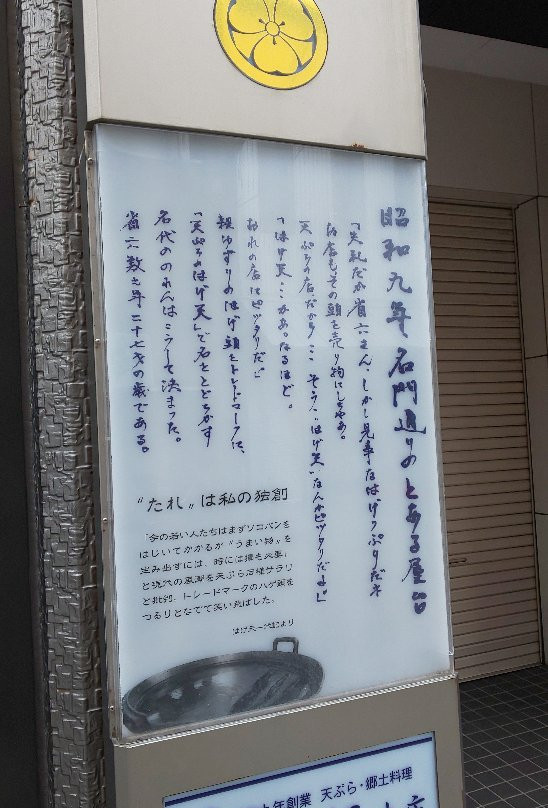 昭和九年名門通りのとある屋台
「失礼だが省六さん、しかし見事なはげっぷりだネ
お店もその頭を売り物にしちゃあ。
天ぷらの店だから… そう〝はげ天〟なんかピッタリだよ」
「はげ天……か。なるほど。
おれの店にピッタリだ」
親ゆずりのはげ頭をトレードマークに、
「天ぷらのはげ天」で名をとどろかす
名代ののれんはこうして決まった。
省六数え年二十七才の歳である。
〝たれ〟は私の独創
「今の若い人たちはまずソロバンを
はじいてかかるが〝うまい物〟を
生み出すには、時には損も必要」
と現代の風潮を天ぷら店様サラリ
と批判、トレードマークのハゲ頭を
つるりとなでて笑い飛ばした。
はげ天一代記より
九年創業 天ぷら・郷土料理